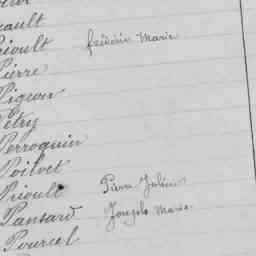 ault
rioult frédéric Marie
Pierre
Pigeon
Pétry
Perroquin
Poilvet
Prioult Pierre Julien
Pansard Marie
Pourcel